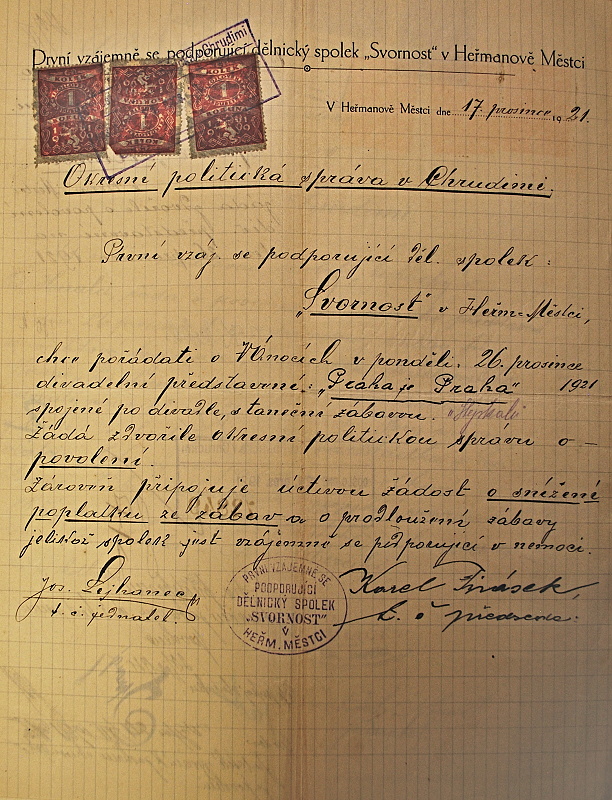 První vzájemně se podporující dělnický spolek „Svornost" v Heřmanově Městci
Chrudimi
KOLEK
1
KORUNA
1919
KOLEK
1
KORUNA
KOLEK
1
KORUNA
1919
V Heřmanově Městci dne 17. prosince 1921.
Okresní politická správa v Chrudimi.
První vzáj. se podporující děl. spolek:
„Svornost" v Heřm. Městci,
chce pořádati o Vánocích v pondělí. 26. prosince
divadelní představení: „Praha je Praha" 1921
spojené po divadle, s taneční zábavou.
Žádá zdvořile okresní politickou správu o –
povolení.
Zároveň připojuje uctivou žádost o snížení
poplatku ze zábav a o prodloužení zábavy
jelikož spolek jest vzájemně se podporující v nemoci.
Jos. Lejhanec
t. č. jednatel.
PRVNÍ VZÁJEMNĚ SE
PODPORUJÍCÍ
DĚLNICKÝ SPOLEK
„SVORNOST"
V
HEŘM. MĚSTCI
Karel
t. č. předseda.